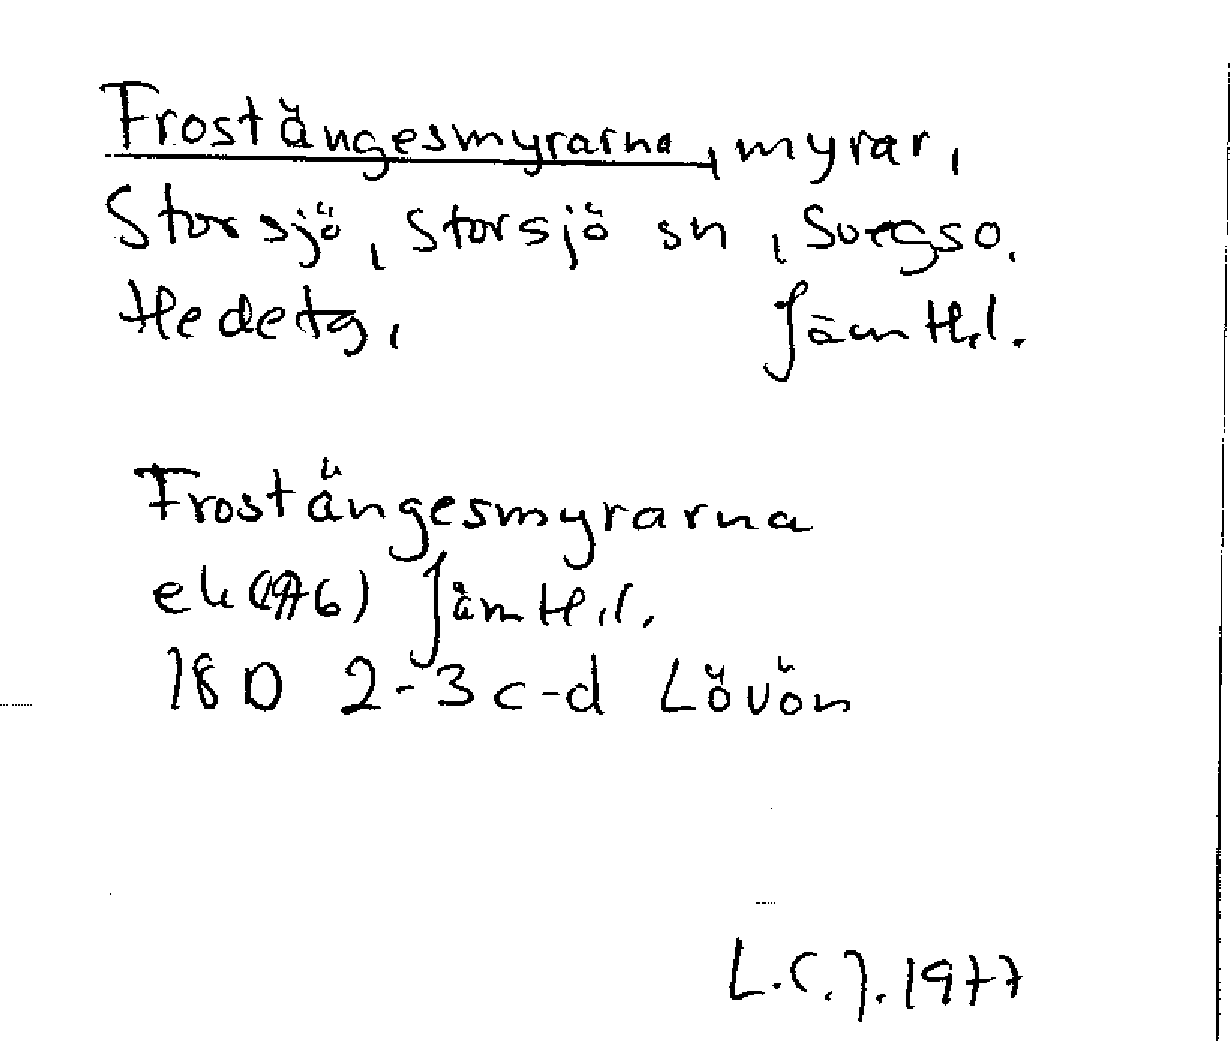 Frostängesmyrarna, myrar,
Storsjö, Storsjö sn, Svegs so.
Hedetg, Jämtl.l.
Frostängesmyrarna
ek (1976) Jämtl.l.
18D 2-3c-d Lövön
L.C.J. 1977